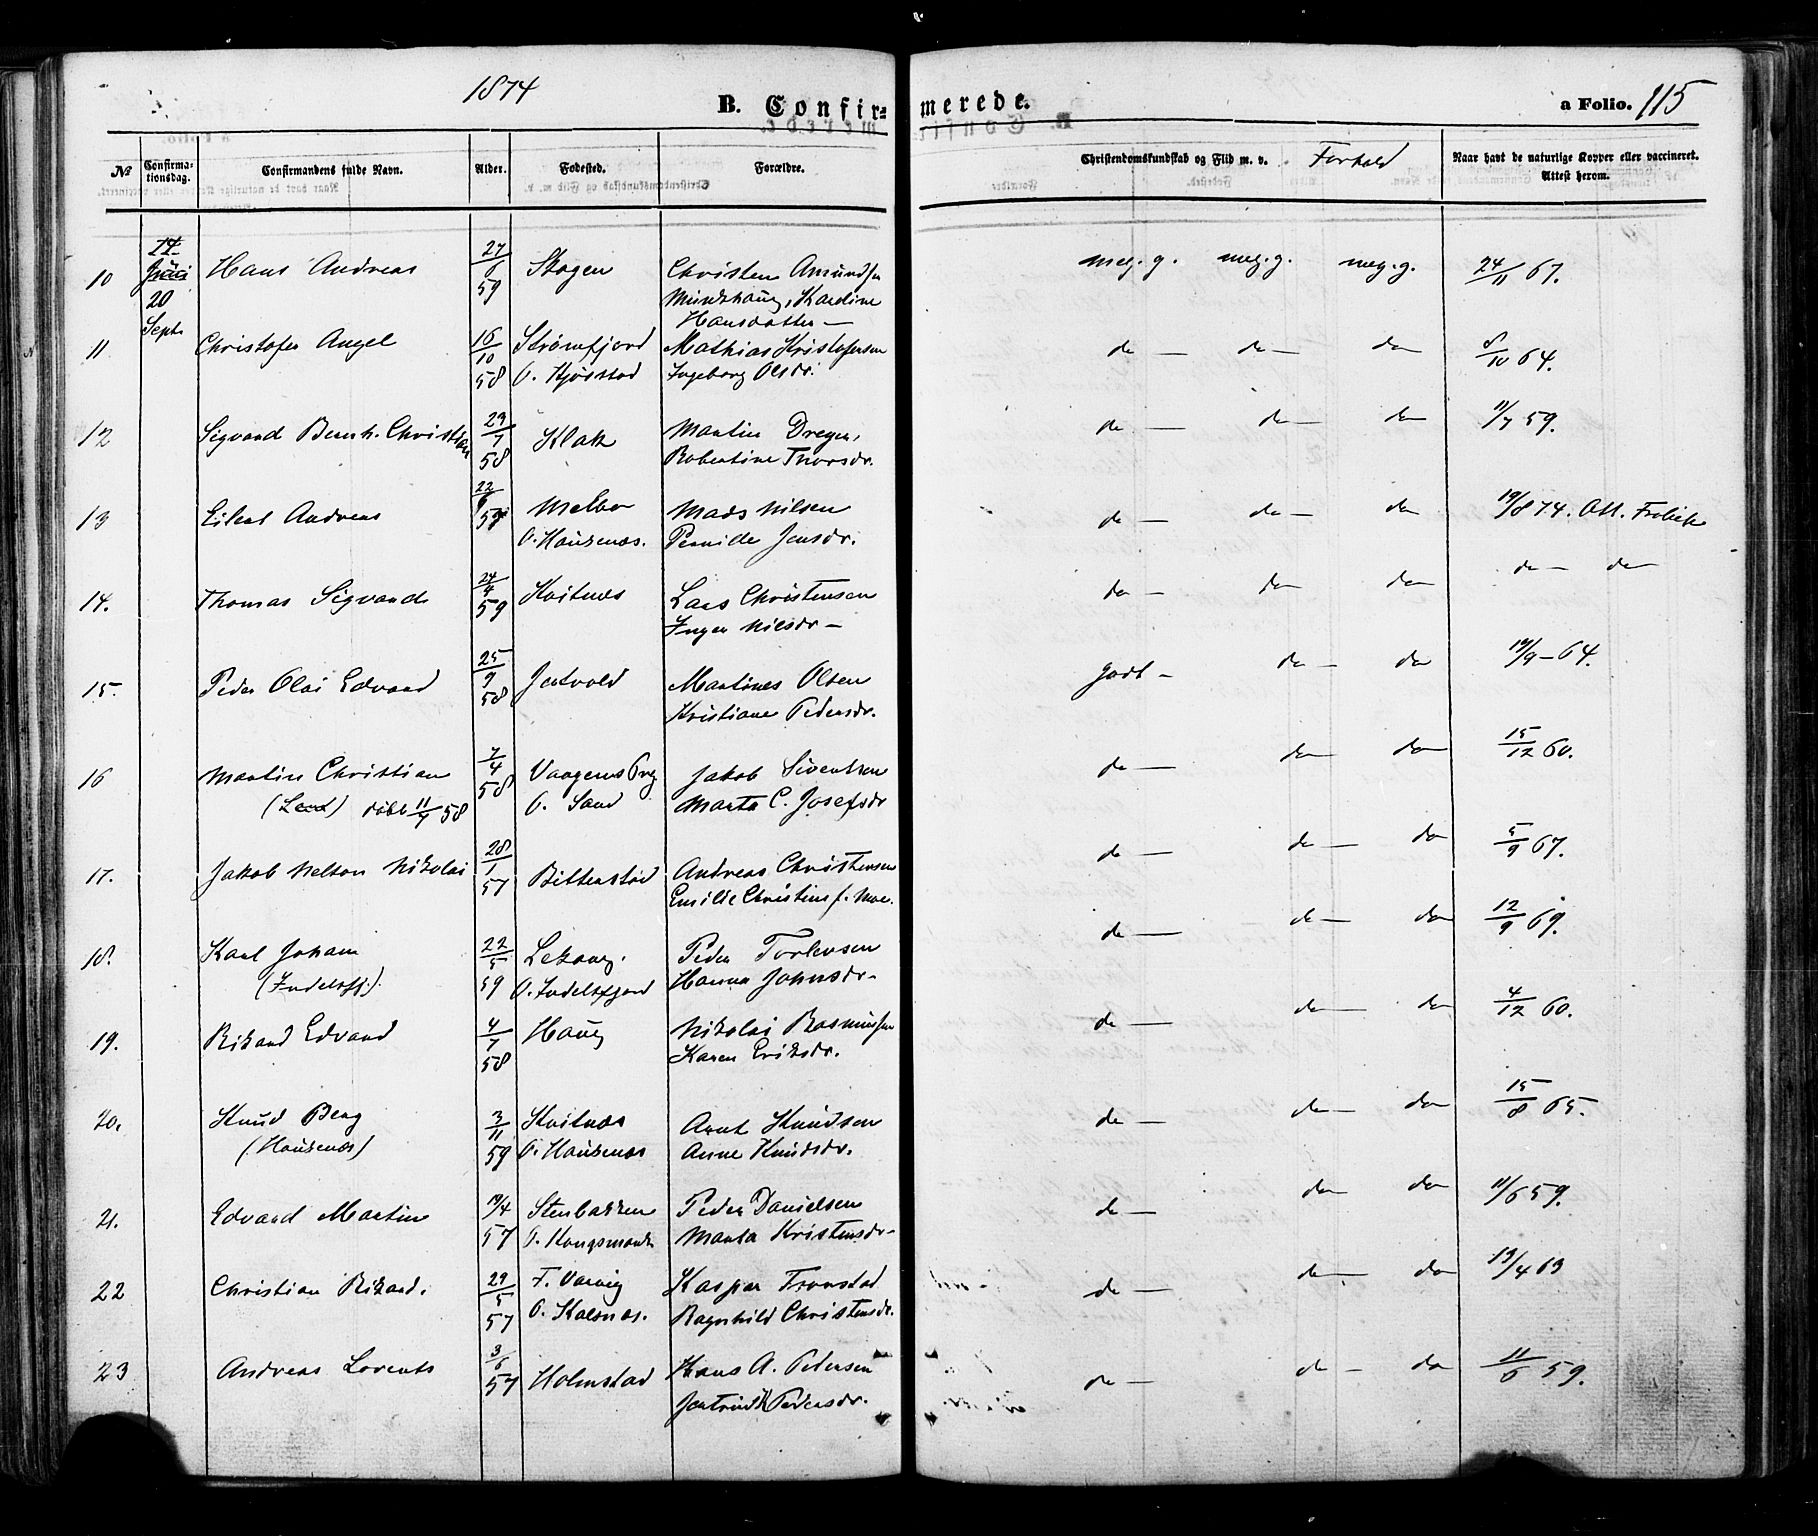 1874
B. Confirmerede.
a Folio. 115
No Confirmationsdag. Confirmandens fulde Navn. Alder. Fødested. Forældre. Christendomskundskab og Flid m. v. Forhold Naar havt de naturlige Kopper eller vaccineret. Attest herom.
20 Septr
10 Hans Andreas 59 Skogen Christen Amundsen meg. g. meg. g. meg. g. 24/11 67.
Karoline
Hansdatter —
11 Christofer Angel 16/10 58 Strømfjord Mathias Kristofersen do — do — do 8/10 64.
O. Kjørstad Ingeborg Olsdr.
12 Sigvard Bernh. Christian 58 Klak Martin Dreyer, do — do do 11/7 59.
Robertine Thorsdr.
13 Eilert Andreas Melbo Mads Nilsen do — do — do 19/8 74. Att.
O. Haukenæs. Pernille Jensdr.
14. Thomas Sigvard 24/4 59 Kvitnæs Lars Christensen do — do do do — do
Inger Nilsdr —
15. Peder Olai Edvard 25/9 58 Jertvold Martines Olsen godt — do — do 19/9 — 64.
Kristiane Pedersdr.
16 Martin Christian 7/4 58 Jakob Sivertsen do — do do 15/12 60.
døbt 11/4 58 O. Sand Marta C. Josefsdr
17. Jakob Melton Nikolai 28/1 57 Bitterstad Andreas Christensen do — do — do 5/9 67.
Emilie Christine f. Moe.
18. Karl Johan 22/5 59 Lekang. Peder Torlevsen do — do — do 12/9 69.
(Indelsfj.). O. Indelsfjord Hanna Johnsdr.
19. Rikard Edvard 4/7 58 Haug Nikolai Rasmussen do — do — do 4/12 60.
Karen Eriksdr.
20. Knud Berg 3/11 59 Kvitnæs Arnt Knudsen do — do — do 15/8 65.
(Haukenæs) O. Haukenæs Anne Knudsdr.
21. Edvard Martin 19/4 57 Stenbakken Peder Danielsen do — do do 11/6 59.
O. Kongsmark Marta Kristensdr —
22 Christian Rikard. 29/5 57 F. Varvig Kaspar Tronstad do — do — do 19/4 63
O. Kalsnæs. Ragnhild Christensdr.
23 Andreas Lorents 3/6 57 Holmstad Hans A. Petersen do — do — do 11/6 59.
Jertrud Pedersdr.